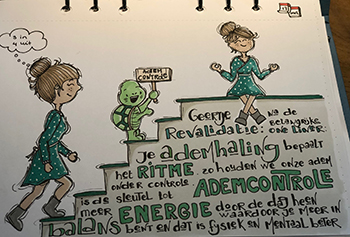 3 in
4 uit
ADEM
CONTROLE
Geertje
Na de
belangrijke
one liner:
Revalidatie:
je ademhaling bepaalt
het RITME. zo houden we onze adem
onder controle. ADEMCONTROLE
is de sleutel tot
meer ENERGIE door de dag heen
waardoor je meer in
balans bent en dat is fysiek en mentaal beter